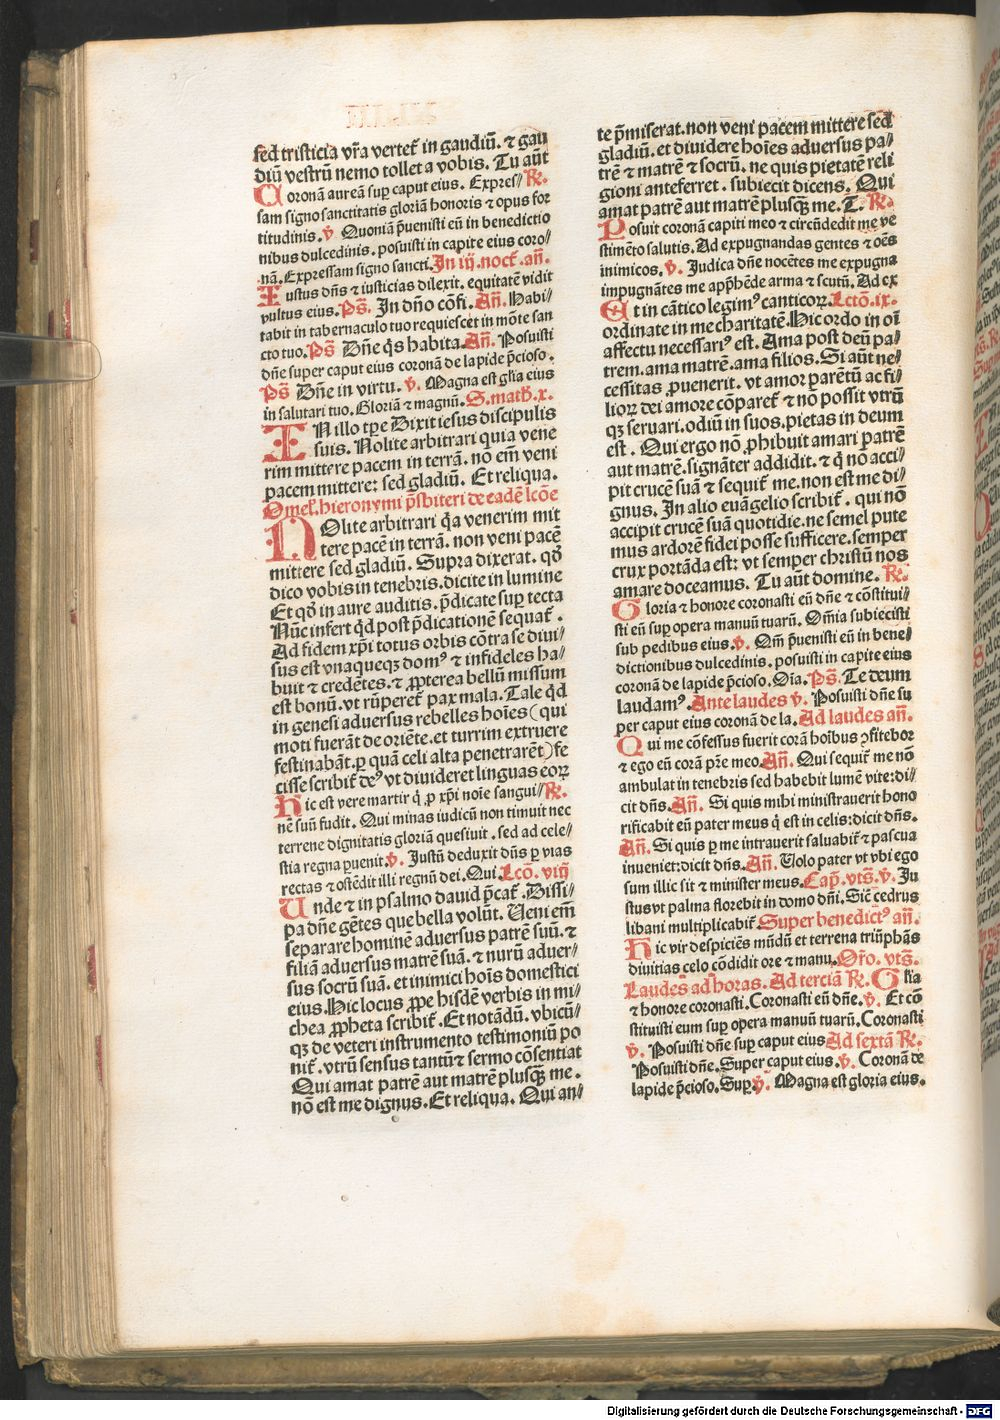 sed tristicia vr̄a vertet᷑ in gaudiū. ⁊ gau
diū vestrū nemo tollet a vobis. Tu aūt
Coronā aureā sup̱ caput eius. Expres/ R̷.
sam signo sanctitatis gloriā honoris ⁊ opus for
titudinis. v̄ Quoniā p̄uenisti eū in benedictio
nibus dulcedinis. posuisti in capite eius coro/
nā. Expressam signo sancti. In iij. noct᷑. an̄.
Iustus dn̄s ⁊ iusticias dilexit. equitatē vidit
vultus eius. Ps̄. In dn̄o cōfi. An̄. Habi/
tabit in tabernaculo tuo requiescet in mōte san
cto tuo. Ps̄ Dn̄e q̄s habita. An̄. Posuisti
dn̄e super caput eius coronā de lapide p̄cioso.
Ps̄ Dn̄e in virtu. v̄. Magna est gl̄ia eius
in salutari tuo. Gloriā ⁊ magnū. S. math̄. x.
IN illo tp̄e Dixit iesus discipulis
suis. Nolite arbitrari quia vene
rim mittere pacem in terrā. nō em̄ veni
pacem mittere: sed gladiū. Et reliqua.
Omel᷑. hieronymi p̄sbiteri de eadē lcōe
NOlite arbitrari q̄a venerim mit
tere pacē in terrā. non veni pacē
mittere sed gladiū. Supra dixerat. qd̄
dico vobis in tenebris. dicite in lumine
Et qd̄ in aure auditis. p̄dicate sup̱ tecta
Nūc infert q̇d post p̄dicationē sequat᷑.
Ad fidem xp̄i totus orbis cōtra se diui/
sus est vnaqueqꝫ domꝰ ⁊ infideles ha/
buit ⁊ credētes. ⁊ ꝓpterea bellū missum
est bonū. vt rūperet᷑ pax mala. Tale q̇d
in genesi aduersus rebelles hoīes (qui
moti fuerāt de oriēte. et turrim extruere
festinabāt. ꝑ quā celi alta penetrarēt) fe
cisse scribit᷑ deꝰ vt diuideret linguas eoꝝ
Hic est vere martir q̇ ꝓ xp̄i noīe sangui/ R̷.
nē suū fudit. Qui minas iudicū non timuit nec
terrene dignitatis gloriā quesiuit. sed ad cele/
stia regna ꝑuenit. v̄. Justū deduxit dn̄s ꝑ vias
rectas ⁊ ostēdit illi regnū dei. Qui. Lcō. viij
Vnde ⁊ in psalmo dauid p̄cat᷑. Dissi/
pa dn̄e gētes que bella volūt. Veni em̄
separare hominē aduersus patrē suū. ⁊
filiā aduersus matrē suā. ⁊ nurū aduer/
sus socrū suā. et inimici hoīs domestici
eius. Hic locus ꝓpe hisdē verbis in mi/
chea ꝓpheta scribit᷑. Et notādū. vbicū/
qꝫ de veteri instrumento testimoniū po
nit᷑. vtrū sensus tantū ⁊ sermo cōsentiat
Qui amat patrē aut matrē plusqꝫ me.
nō est me dignus. Et reliqua. Qui an/
te p̄miserat. non veni pacem mittere sed
gladiū. et diuidere hoīes aduersus pa/
trē ⁊ matrē ⁊ socrū. ne quis pietatē reli
gioni anteferret. subiecit dicens. Qui
amat patrē aut matrē plusqꝫ me. T. R̷.
Posuit coronā capiti meo ⁊ circūdedit me ve
stimēto salutis. Ad expugnandas gentes ⁊ oēs
inimicos. v̄. Iudica dn̄e nocētes me expugna
impugnātes me app̄hēde arma ⁊ scutū. Ad ex
Et in cātico legimꝰ canticoꝝ. Lctō. ix.
ordinate in me charitatē. Hic ordo in oī
affectu necessariꝰ est. Ama post deū pa/
trem. ama matrē. ama filios. Si aūt ne/
cessitas ꝓuenerit. vt amor parētū ac fi/
lioꝝ dei amore cōparet᷑ ⁊ nō possit vtrū
qꝫ seruari. odiū in suos. pietas in deum
est. Qui ergo nō ꝓhibuit amari patrē
aut matrē. signāter addidit. ⁊ q̇ nō acci/
pit crucē suā ⁊ sequit᷑ me. non est me di/
gnus. In alio euāgelio scribit᷑. qui nō
accipit crucē suā quotidie. ne semel pute
mus ardorē fidei posse sufficere. semper
crux portāda est: vt semper christū nos
amare doceamus. Tu aūt domine. R̷.
Gloria ⁊ honore coronasti eū dn̄e ⁊ cōstitui/
sti eū sup̱ opera manuū tuarū. Om̄ia subiecisti
sub pedibus eius. v̄. Qm̄ p̄uenisti eū in bene/
dictionibus dulcedinis. posuisti in capite eius
coronā de lapide p̄cioso. Oīa. Ps̄. Te deum
laudamꝰ. Ante laudes v̄. Posuisti dn̄e su
per caput eius coronā de la. Ad laudes an̄.
Qui me cōfessus fuerit corā hoībus ꝯfitebor
⁊ ego eū corā pr̄e meo. An̄. Qui sequit᷑ me nō
ambulat in tenebris sed habebit lumē vite: di/
cit dn̄s. An̄. Si quis mihi ministrauerit hono
rificabit eū pater meus q̇ est in celis: dicit dn̄s.
An̄. Si quis ꝑ me intrauerit saluabit᷑ ⁊ pascua
inueniet: dicit dn̄s. An̄. Volo pater vt vbi ego
sum illic sit ⁊ minister meus. Cap̄. vts̄. v̄. Ju
stus vt palma florebit in domo dn̄i. Sic̄ cedrus
libani multiplicabit᷑. Super benedictꝰ an̄.
Hic vir despiciēs mūdū et terrena triūphās
diuitias celo cōdidit ore ⁊ manu. Or̄o. vts̄.
Laudes ad horas. Ad terciā R̷. Gl̄ia
⁊ honore coronasti. Coronasti eū dn̄e. v̄. Et cō
stituisti eum sup̱ opera manuū tuarū. Coronasti
v̄. Posuisti dn̄e sup̱ caput eius Ad sextā R̷.
Posuisti dn̄e. Super caput eius. v̄. Coronā de
lapide p̄cioso. Sup̱ v̄. Magna est gloria eius.
Digitalisierung gefördert durch die Deutsche Forschungsgemeinschaft - DFG